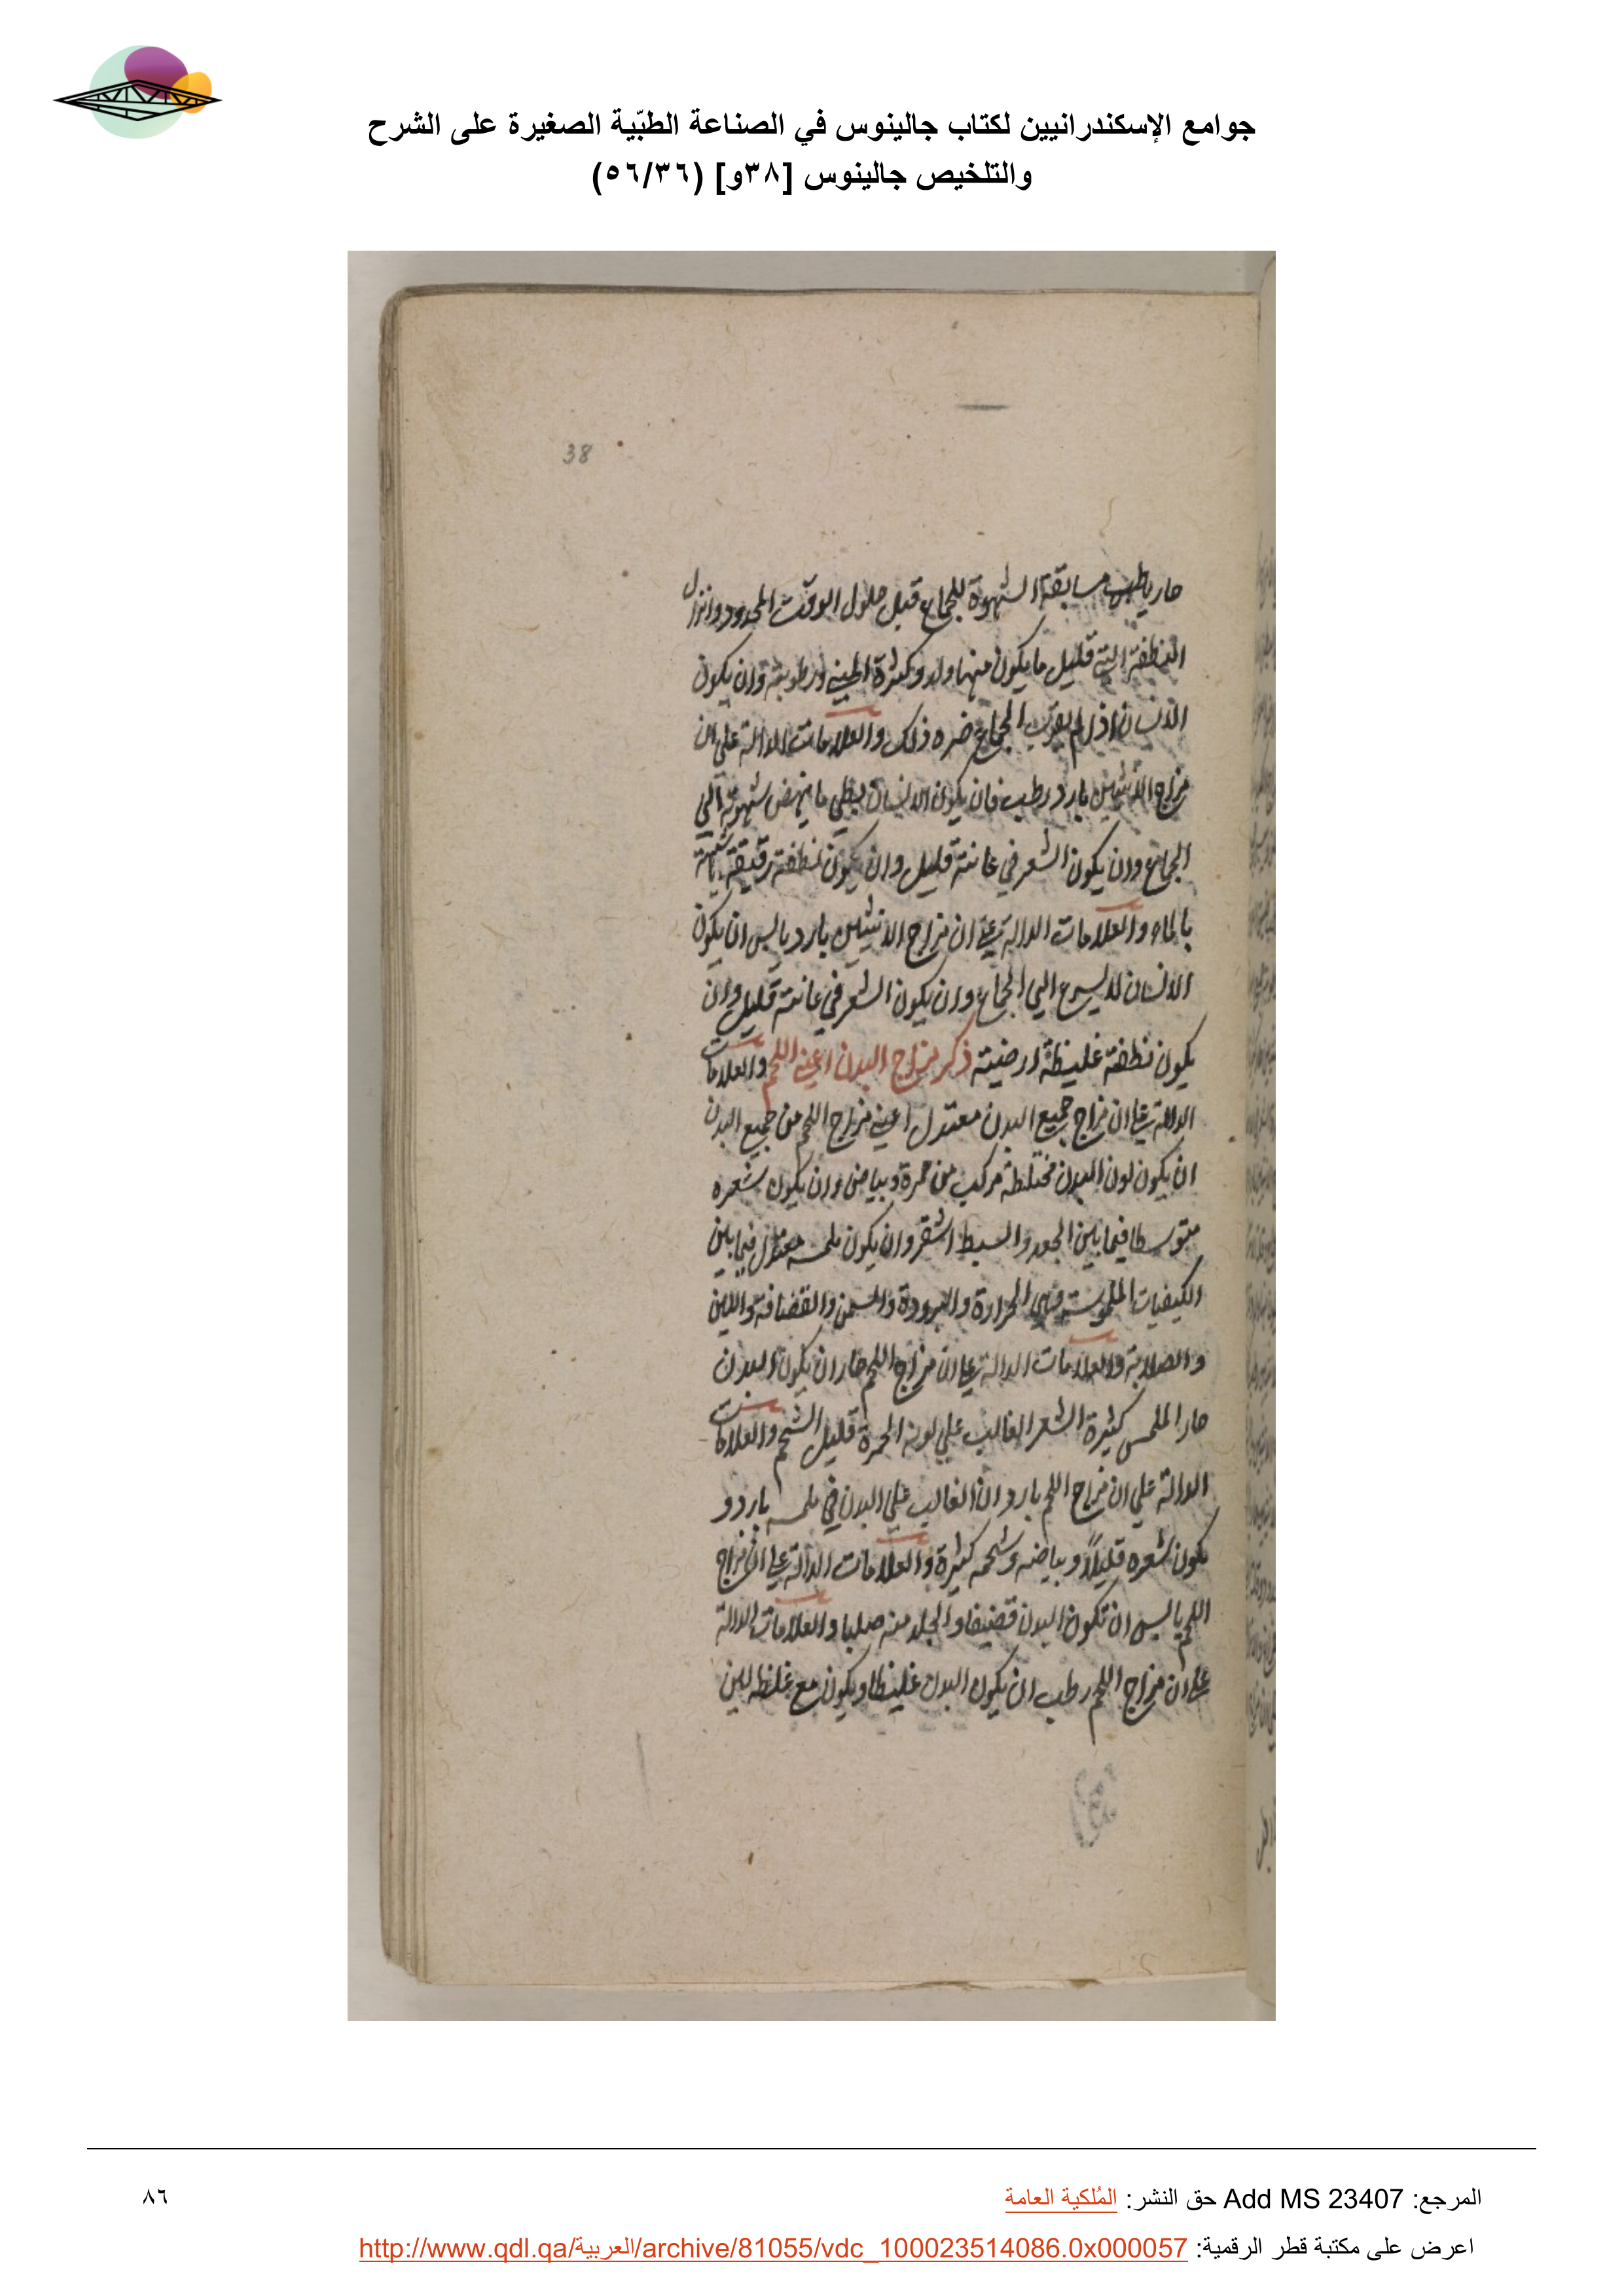 جوامع الإسكندرانيين لكتاب جالينوس في الصناعة الطبّية الصغيرة على الشرح
والتلخيص جالينوس [٣٨و] (٥٦/٣٦)
38
حار يابس مسابقة الشهوة للجماع قبل حلول الوقت المحدود وانزال
النطفة التي قليل ما يكون منها ولد وكثرة المني ورطوبته وان يكون
الانسان اذا لم يقرب الجماع ضره ذلك والعلامات الدالة على ان
مزاج الانثيين بارد رطب فان يكون الانسان بطي ما ينهض شهوته الي
الجماع وان يكون الشعر في عانته قليل وان يكون نطفته رقيقة شبيهة
بالماء والعلامات الدالة علي ان مزاج الانثيين بارد يابس ان يكون
الانسان لا يسرع الي الجماع وان يكون الشعر في عانته قليل وان
يكون نطفته غليظة ارضيته ذكر مزاج البدن اعني اللحم والعلامات
الدالة علي ان مزاج جميع البدن معتدل اعني مزاج اللحم من جميع البدن
ان يكون لون البدن مختلطة مركب من حمرة وبياض وان يكون شعره
متوسطا فيما بين الجعد والسبط اشقر وان يكون ملمسه معتدل فيما بين
الكيفيات الملموسة وهي الحرارة والبرودة والسمن والقضافة واللين
والصلابة والعلامات الدالة علي ان مزاج اللحم حار ان يكون البدن
حار الملمس كثيرة الشعر الغالب علي لونه الحمرة قليل الشحم والعلامات
الدالة علي ان مزاج اللحم بارد ان الغالب علي البدن في ملمسه بارد و
يكون شعره قليلاً وبياضه وشحمه كثيرة والعلامات الدالة علي ان مزاج
اللحم يابس ان تكون البدن قضيفا والجلد منه صلبا والعلامات الدالة
علي ان مزاج اللحم رطب ان يكون البدن غليظا ويكون مع غلظه لين
المرجع: Add MS 23407 حق النشر: المُلكية العامة
٨٦
اعرض على مكتبة قطر الرقمية: http://www.qdl.qa/العربية/archive/81055/vdc_100023514086.0x000057